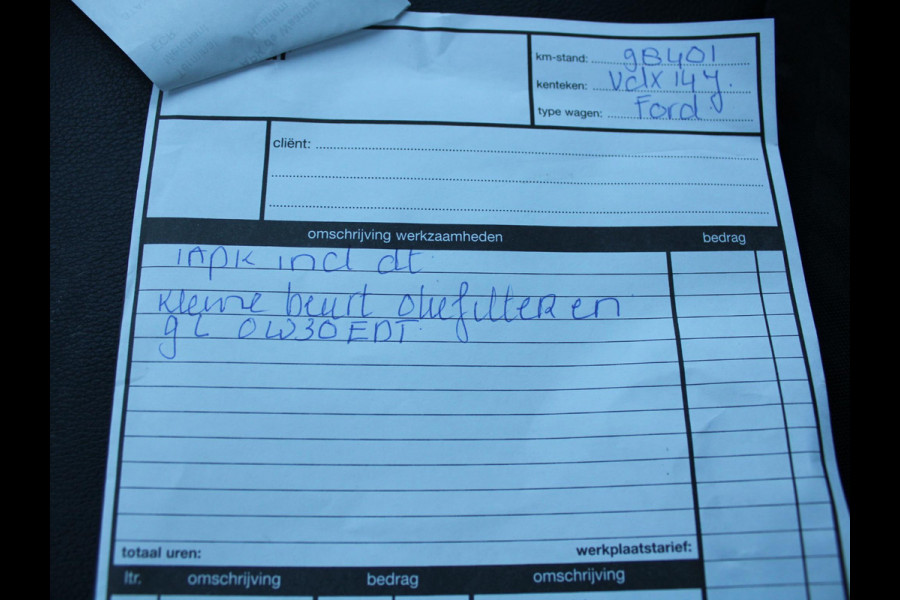 km-stand: 98401
kenteken: VdX 14 y.
type wagen: Ford
cliënt:
omschrijving werkzaamheden bedrag
1 APK incl dt
kleine beurt oliefilter en
9 L 0W30 EDT
totaal uren: werkplaatstarief:
ltr. omschrijving bedrag omschrijving